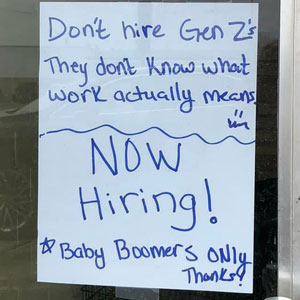 Don't hire Gen Z's
They don't know what
work actually means.
NOW
Hiring!
Baby Boomers ONLY
Thanks!